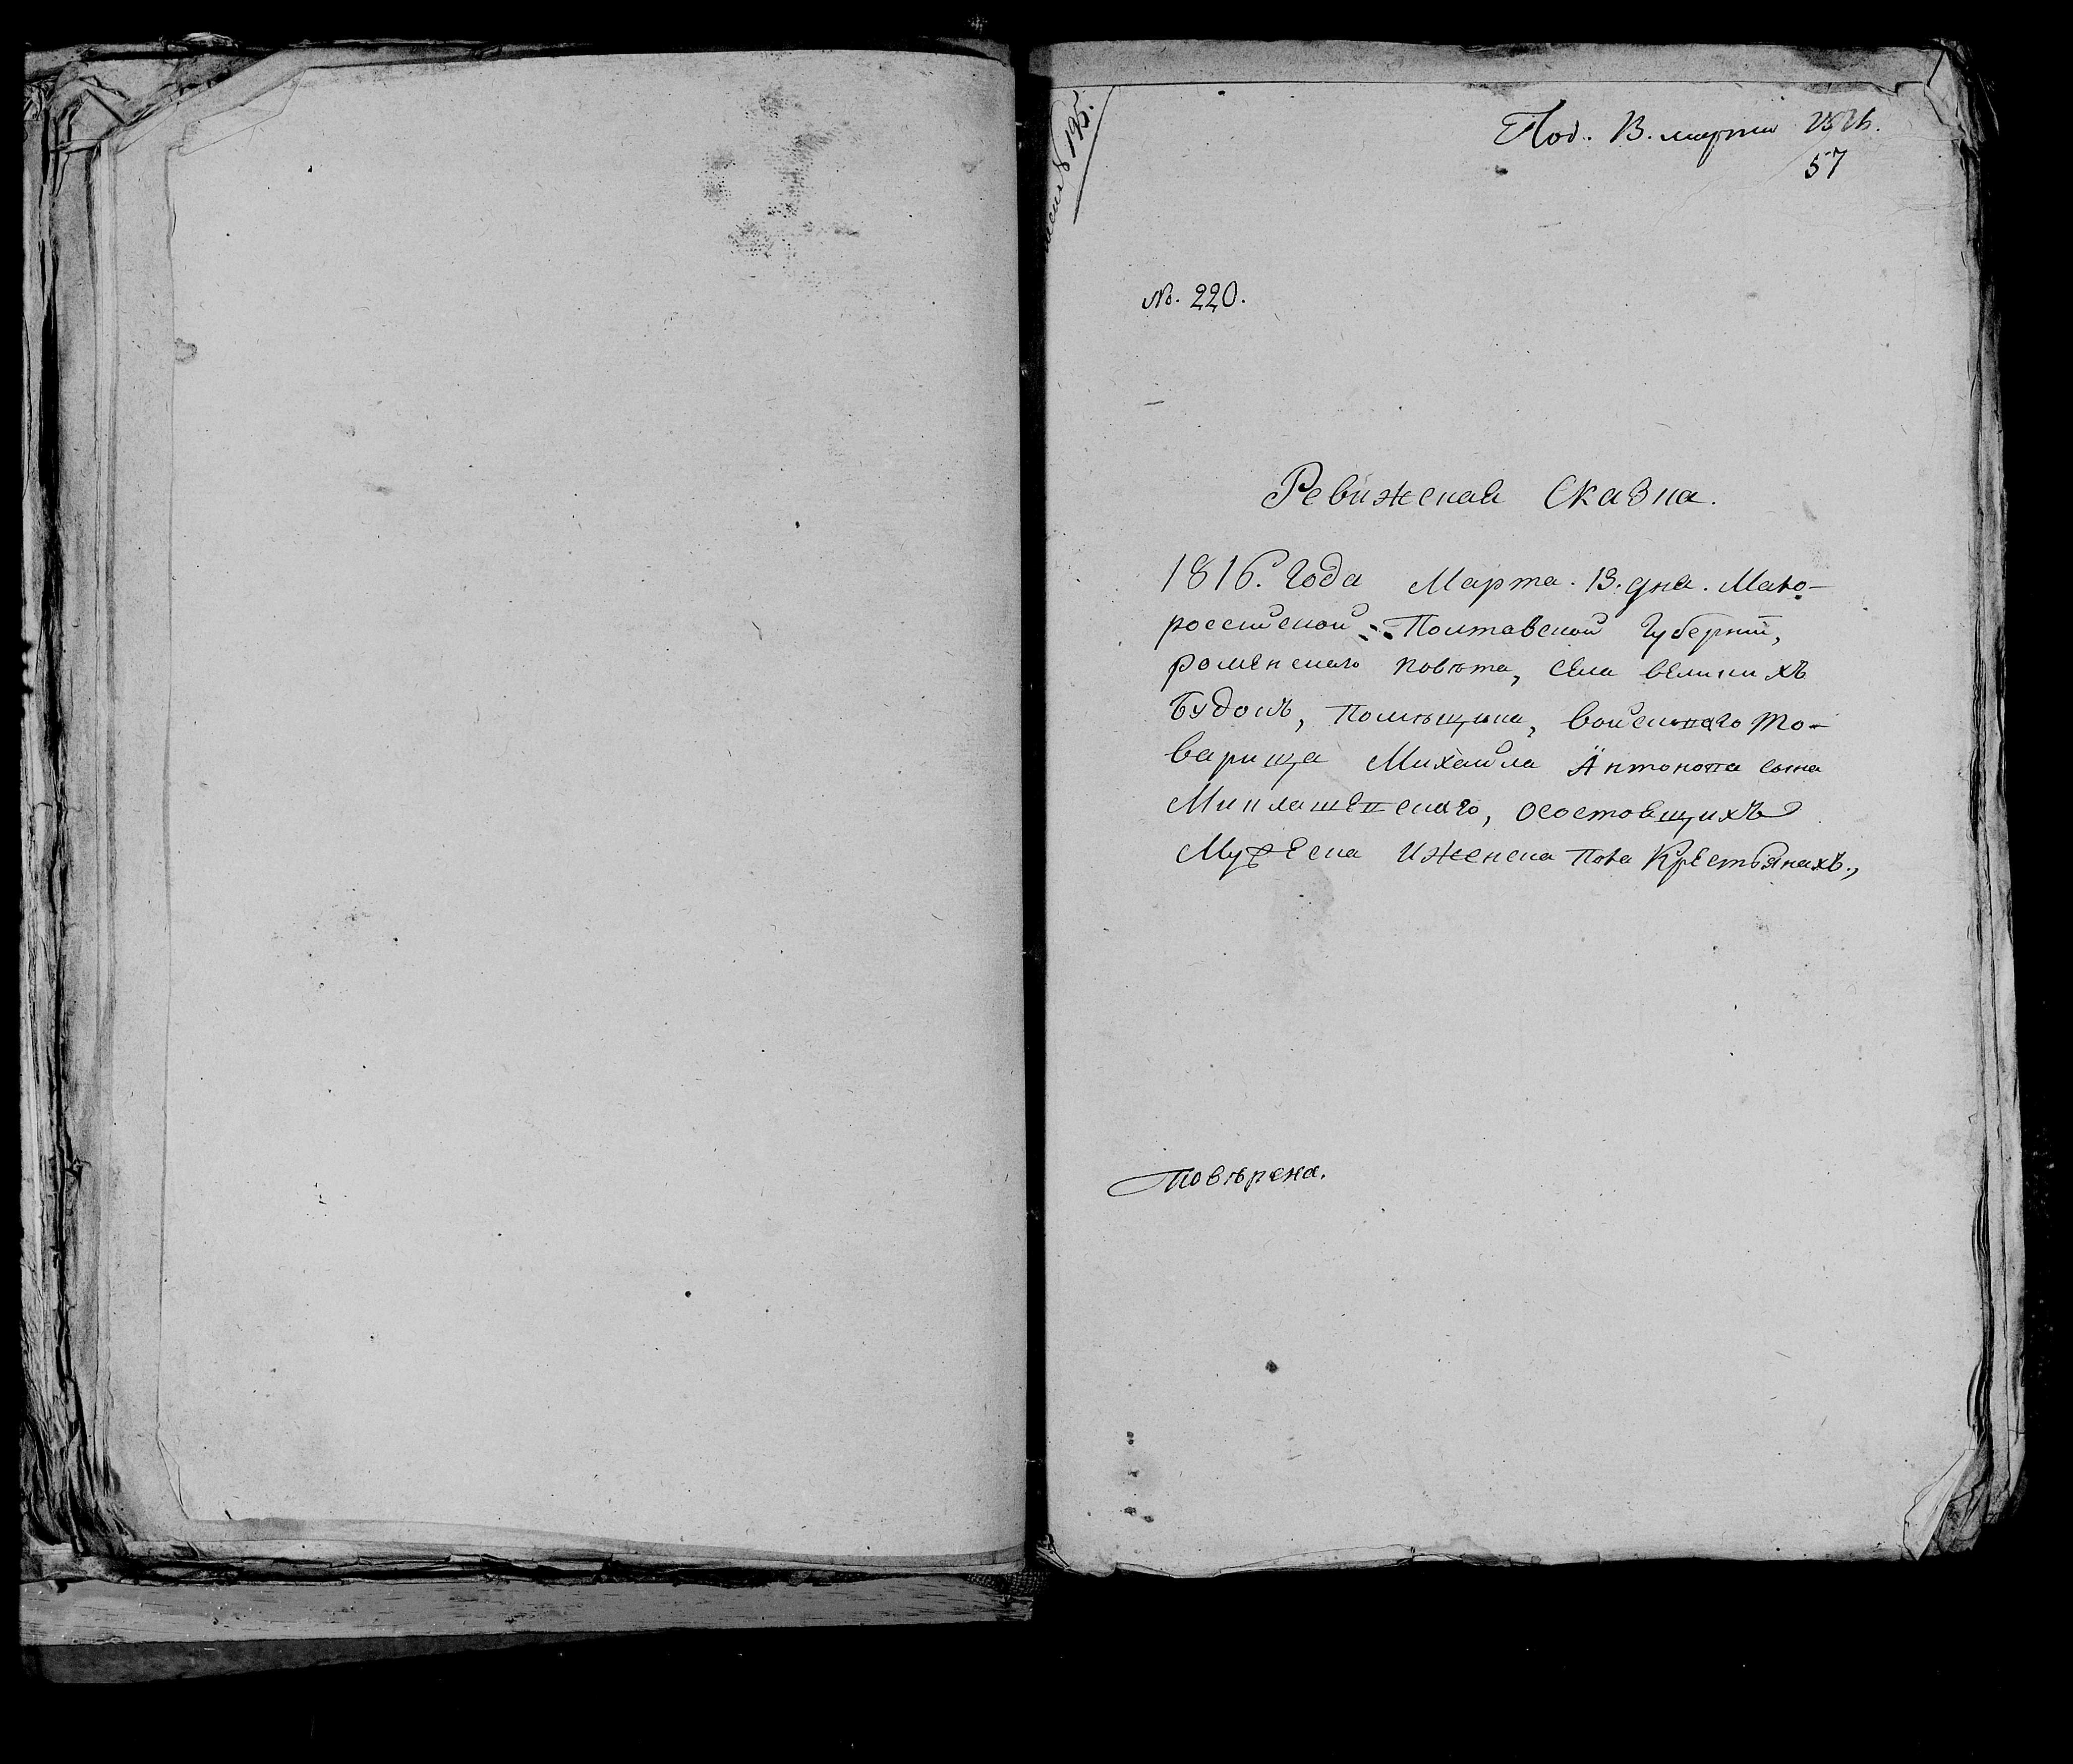 Под. 13. марта 1816.
57
№. 220.
Ревижская Сказка.
1816. Года Марта. 13. дня. Мало-
россійской Полтавской Губерніи,
роменскаго повѣта, села великихъ
Будокъ, помѣщика, войсковаго то-
варища Михайла Антонова сына
Миклашевскаго, осостоящихъ
Мужеска иженска пола Крестьянахъ.,
повѣрена.